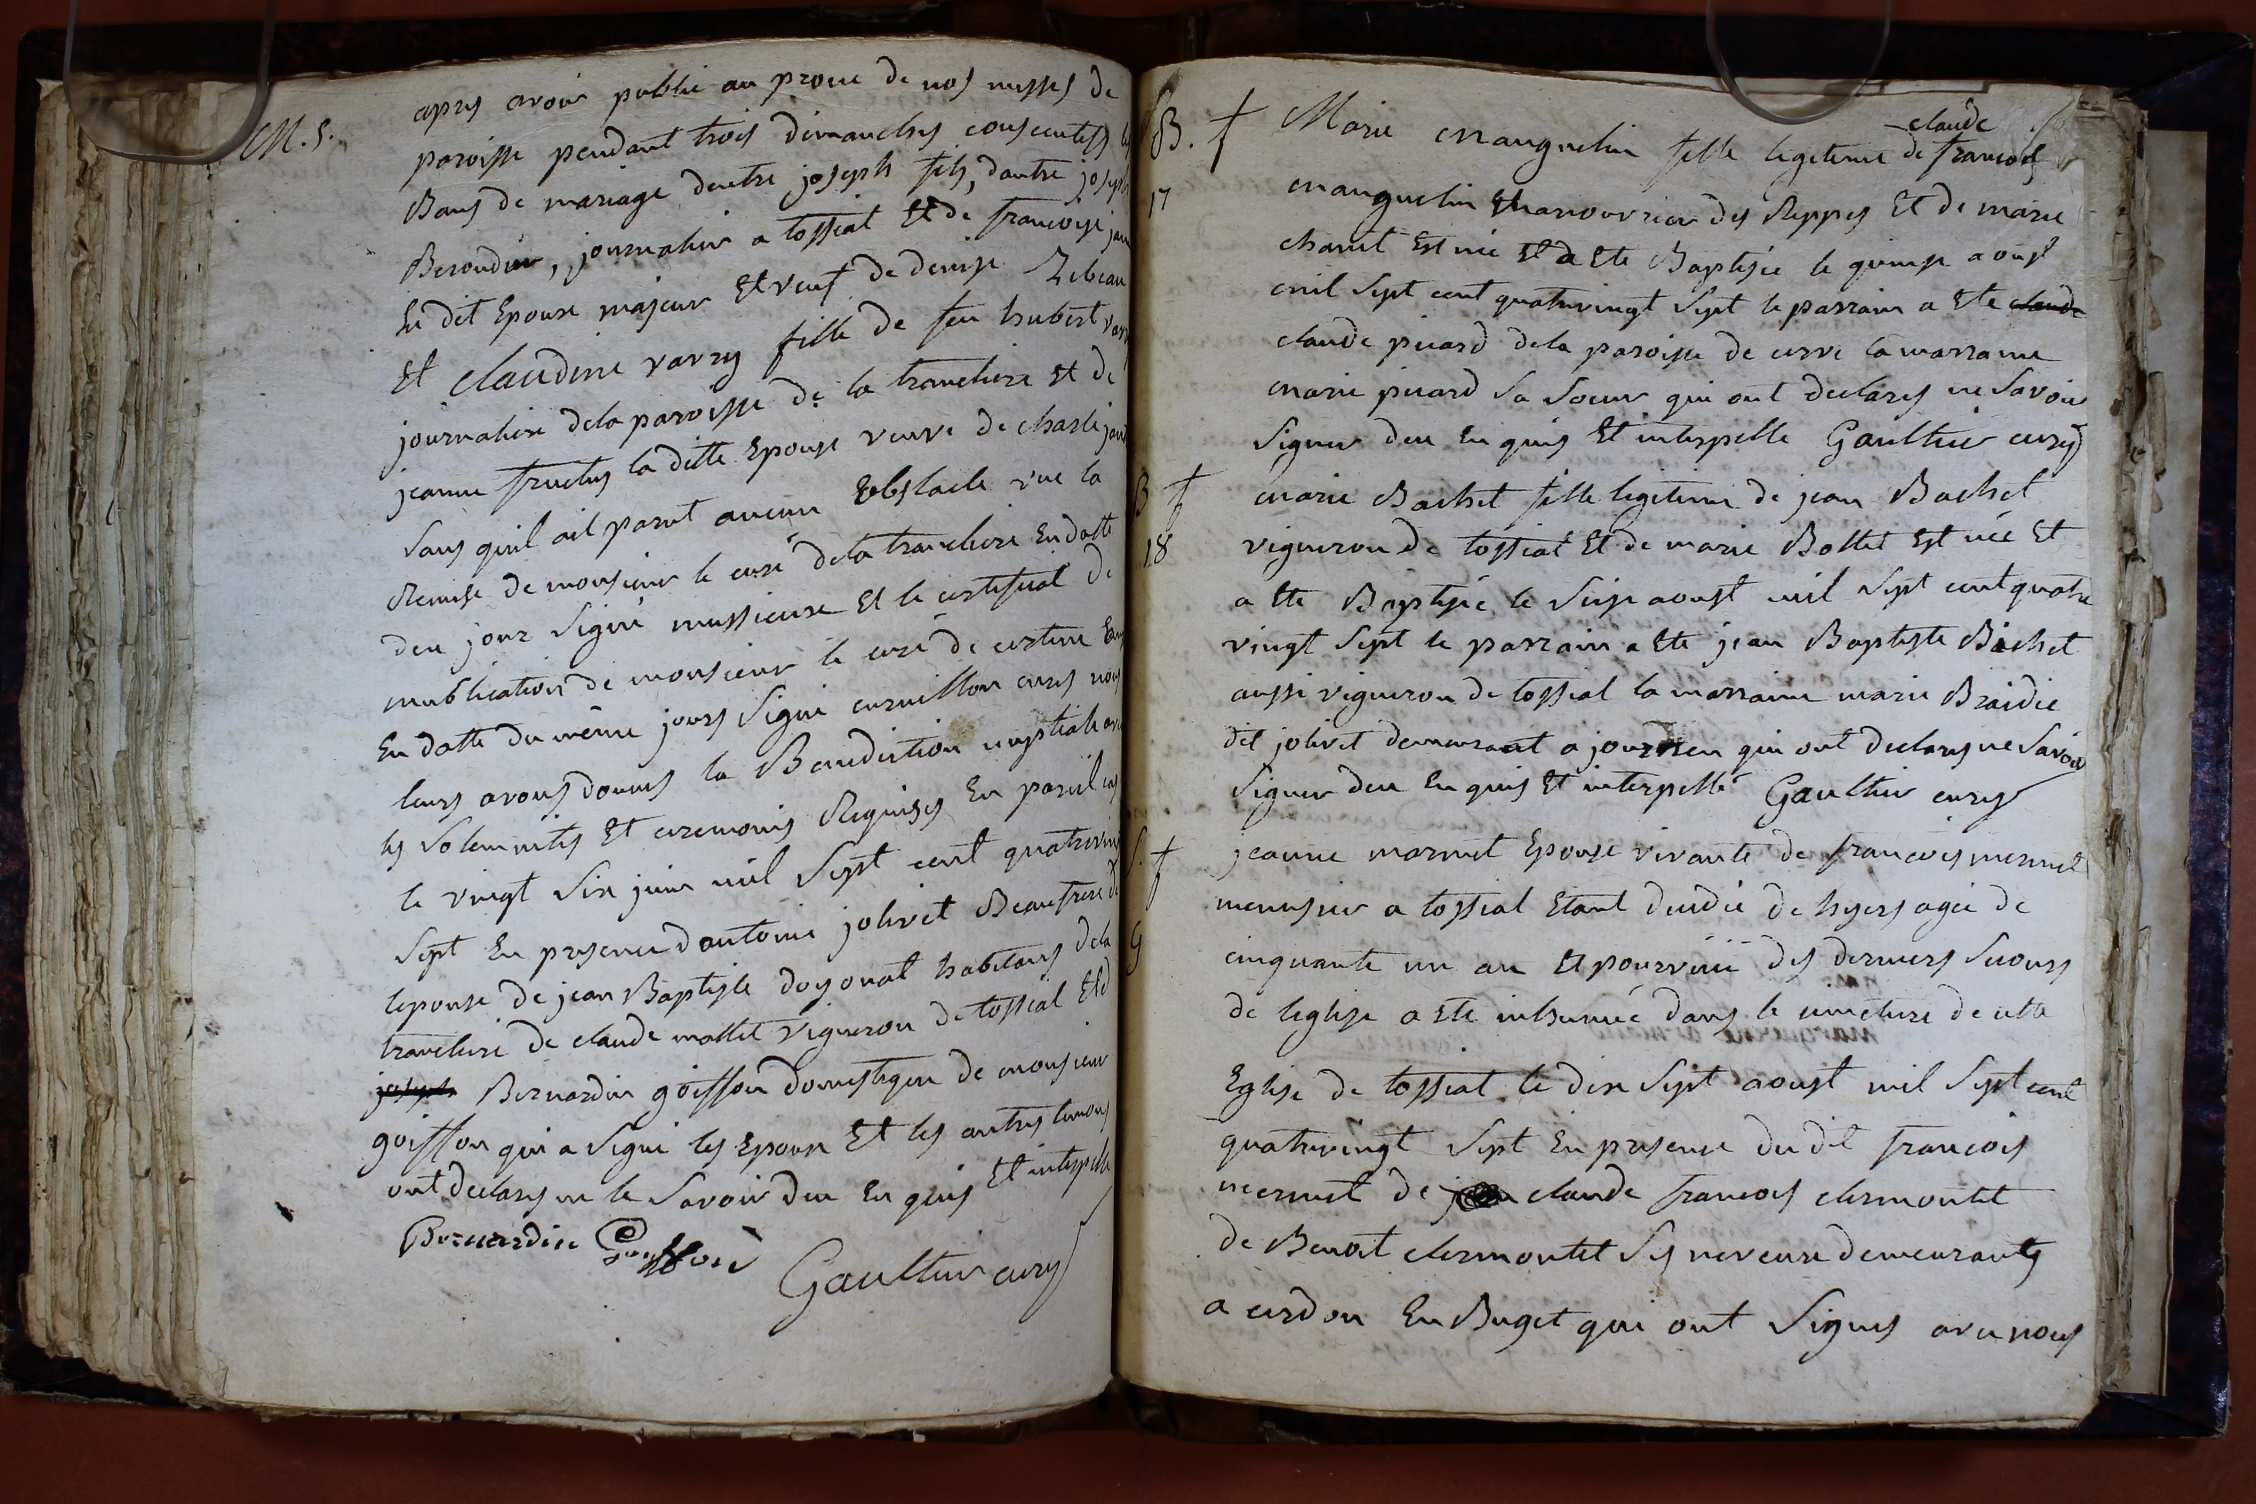 M. 5.
apres avoir publie au prone de nos messes de
paroisse pendant trois dimanches consecutifs les
Bans de mariage dentre joseph fils, dautre joseph
Beroudier, journalier a tossiat Et de francoise
le dit Epoux majeur Et veuf de denise Rebeau
Et claudine varry fille de feu hubert
journalier dela paroisse de la trancliere Et de
jeanne fructus la ditte Epouse veuve de charle
sans quil ait parut aucun obstacle vue la
Remise de monsieur le curé dela trancliere En datte
deu jour signé messieure Et le certificat de
mublication de monsieur le curé de certine
En datte du même jours signé curnillon curés nous
leurs avons donnes la Benediction nuptiale
les solemnites Et ceremonies Requises En pareil cas
le vingt six juin mil sept cent quatreving
sept En presence dantoine jolivet Beaufrere de
lepouse de jean Baptiste doyonat habitans dela
trancliere de claude mollet vigneron de tossiat Et
joseph Bernardin goiffon domestique de monsieur
goiffon qui a signé les Epoux Et les autres temoins
ont declares ne le savoir deu En quis Et interpelle
Bernardin Goiffon
Gaultier curé
B. †
17
Marie mauguelin fille legitime de claude francois
mauguelin manouvrier des Rippes Et de marie
charvet Est née Et a Ete Baptisée le quinze aoust
mil sept cent quatrevingt sept le parrain a Ete claude
claude picard dela paroisse de certine la marraine
marie picard sa soeur qui ont declares ne savoir
signer deu En quis Et interpelle Gaultier curé
B †
18
marie Bachet fille legitime de jean Bachet
vigneron de tossiat Et de marie Bollet Est née Et
a Ete Baptisée le seize aoust mil sept cent quatre
vingt sept le parrain a Ete jean Baptiste Bichet
aussi vigneron de tossiat la marraine marie Braidie
dit jolivet demeurant a journen qui ont declares ne savoir
signer deu En quis Et interpellé Gaultier curé
S. †
9
jeanne marmet Epouse vivante de francois mermet
menusier a tossiat Etant decidée de hyers agée de
cinquante un an Et pourvüe des derniers secours
de leglise a Ete inhumée dans le cimetiere de cette
Eglise de tossiat le dix sept aoust mil sept cent
quatrevingt sept En presence du dit francois
mermet de claude francois clermontet
de Benoit clermontet ses neveux demeurants
a cerdon En Buget qui ont signés avec nous